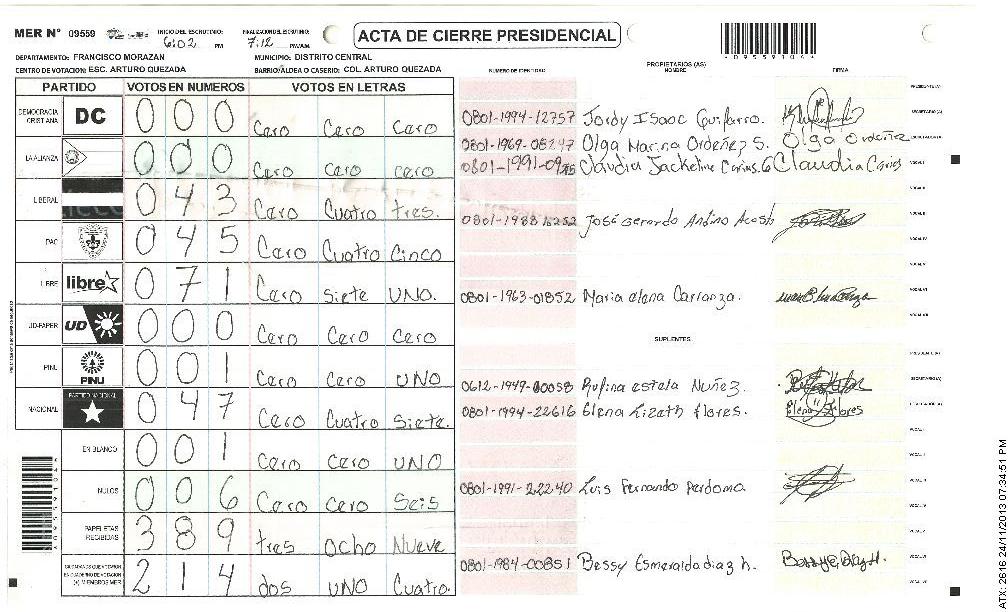 MER N° 09559 INICIO DEL ESCRUTINIO: 6:02 PM FINALIZACION DEL ESCRUTINIO: 7:12 PM/AM
ACTA DE CIERRE PRESIDENCIAL
DEPARTAMENTO: FRANCISCO MORAZAN MUNICIPIO: DISTRITO CENTRAL
CENTRO DE VOTACION: ESC. ARTURO QUEZADA BARRIO/ALDEA O CASERIO: COL. ARTURO QUEZADA
NUMERO DE IDENTIDAD PROPIETARIOS (AS) NOMBRE FIRMA
PARTIDO VOTOS EN NUMEROS VOTOS EN LETRAS
DEMOCRACIA CRISTIANA DC 0 0 0 Cero Cero Cero
LA ALIANZA 0 0 0 Cero cero cero
LIBERAL 0 4 3 Cero Cuatro tres.
PAC 0 4 5 Cero Cuatro Cinco
LIBRE libre 0 7 1 Cero Siete UNO.
UD-FAPER UD 0 0 0 Cero Cero Cero
PINU PINU 0 0 1 Cero Cero UNO
NACIONAL PARTIDO NACIONAL 0 4 7 Cero Cuatro Siete.
EN BLANCO 0 0 1 Cero Cero UNO
NULOS 0 0 6 Cero cero Seis
PAPELETAS RECIBIDAS 3 8 9 tres ocho Nueve
CIUDADANOS QUE VOTARON EN CUADERNO DE VOTACION (+) MIEMBROS MER 2 1 4 dos UNO Cuatro.
PRESIDENTE (A)
0801-1994-12757 Jordy Isaac SECRETARIO (A)
0801-1969-08247 Olga Marina Ordeñez S. Olga Ordoñez
0801-1991-09 Claudia Jackeline Carias G Claudia Carias VOCAL I
VOCAL II
0801-1988 José Gerardo Andino Acosta VOCAL III
VOCAL IV
VOCAL V
0801-1963-01852 Maria elena Carranza. VOCAL VI
VOCAL VII
SUPLENTES
PRESIDENTE (A)
0612-1949-00058 Rufina estela Nuñez. SECRETARIO (A)
0801-1994-22616 Elena Lizeth flores. Elena flores
VOCAL I
VOCAL II
0801-1991-22240 Luis Fernando Perdomo VOCAL III
VOCAL IV
VOCAL V
0801-1984-00851 Bessy Esmeralda diaz h. VOCAL VI
VOCAL VII
ATX: 2616 24/11/2013 07:34:51 PM